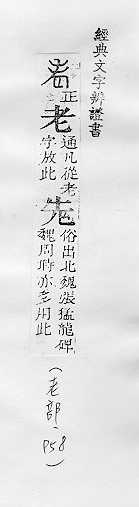 經典文字辨證書
正
老
通凡從老
字放此
俗出北魏張猛龍碑
魏周時亦多用此
(老部.P58)